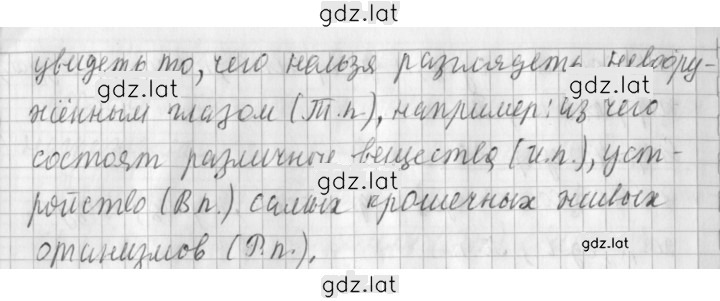 gdz.lat
увидеть то, чего нельзя разглядеть невоору-
gdz.lat
gdz.lat
жённым глазом (Т.п.), например: из чего
состоят различные вещества (и.п.), уст-
gdz.lat
ройство (В.п.) самых крошечных живых
отанизмов (Р.п.).
gdz.lat
gdz.lat